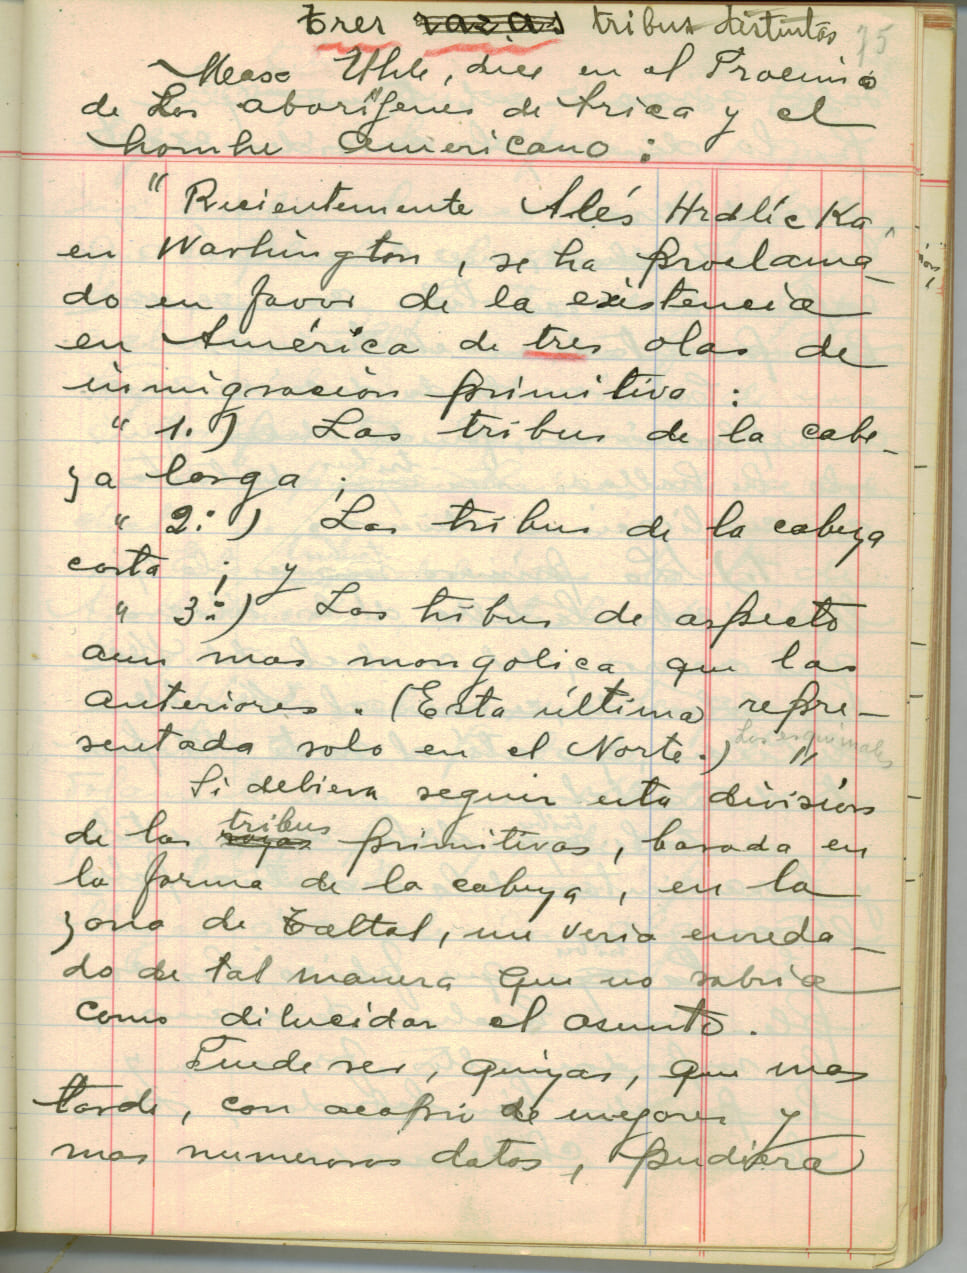 tres razas tribus distintas 75
Maxo Uhle, dice en el Proemio
de Los aborígenes de Arica y el
hombre americano :
"Recientemente Alés Hrdlícka,
en Washington, se ha proclama_
do en favor de la existencia
en América de tres olas de
inmigración primitiva :
" 1.) Las tribus de la cabe_
za larga ;
" 2:) Las tribus de la cabeza
corta ; y
" 3:) Las tribus de aspecto
aun mas mongolica que las
anteriores. (Esta última) repre_
sentada solo en el Norte.) " Los esquimales
Si debiera seguir esta división
tribus
de las razas primitivas, basada en
la forma de la cabeza, en la
zona de Taltal, me veria enreda_
do de tal manera que no sabria
como dilucidar el asunto.
Puede ser, quizas, que mas
tarde, con acopio de mejores y
mas numerosos datos, pudiera